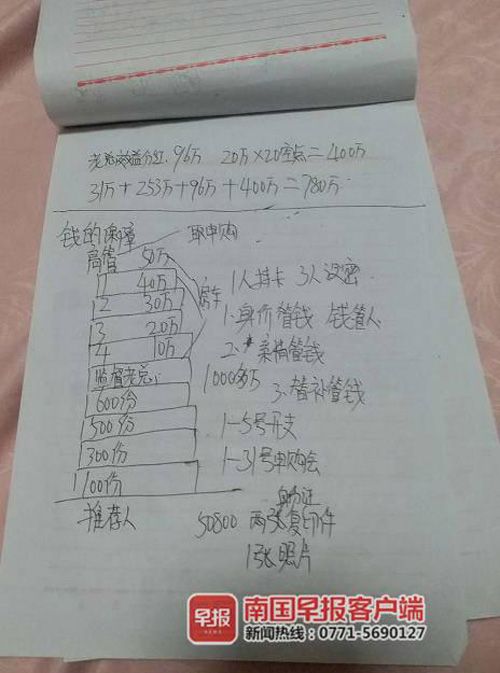 老总效益分红:96万 20万×20空点=400万
31万+253万+96万+400万=780万
钱的保障 取申购
高管 50万
1 40万 1人持卡 3人设密
2 30万 房车
3 20万 1.身价管钱 钱管人
4 10万 2.亲情管钱
监督老总 1000多万
600份 3.替补管钱
500份 1-5号开支
300份 1-31号申购会
1 100份 身份证
推荐人 50800 两张复印件
1张照片
早报 南国早报客户端
NEWS 新闻热线:0771-5690127